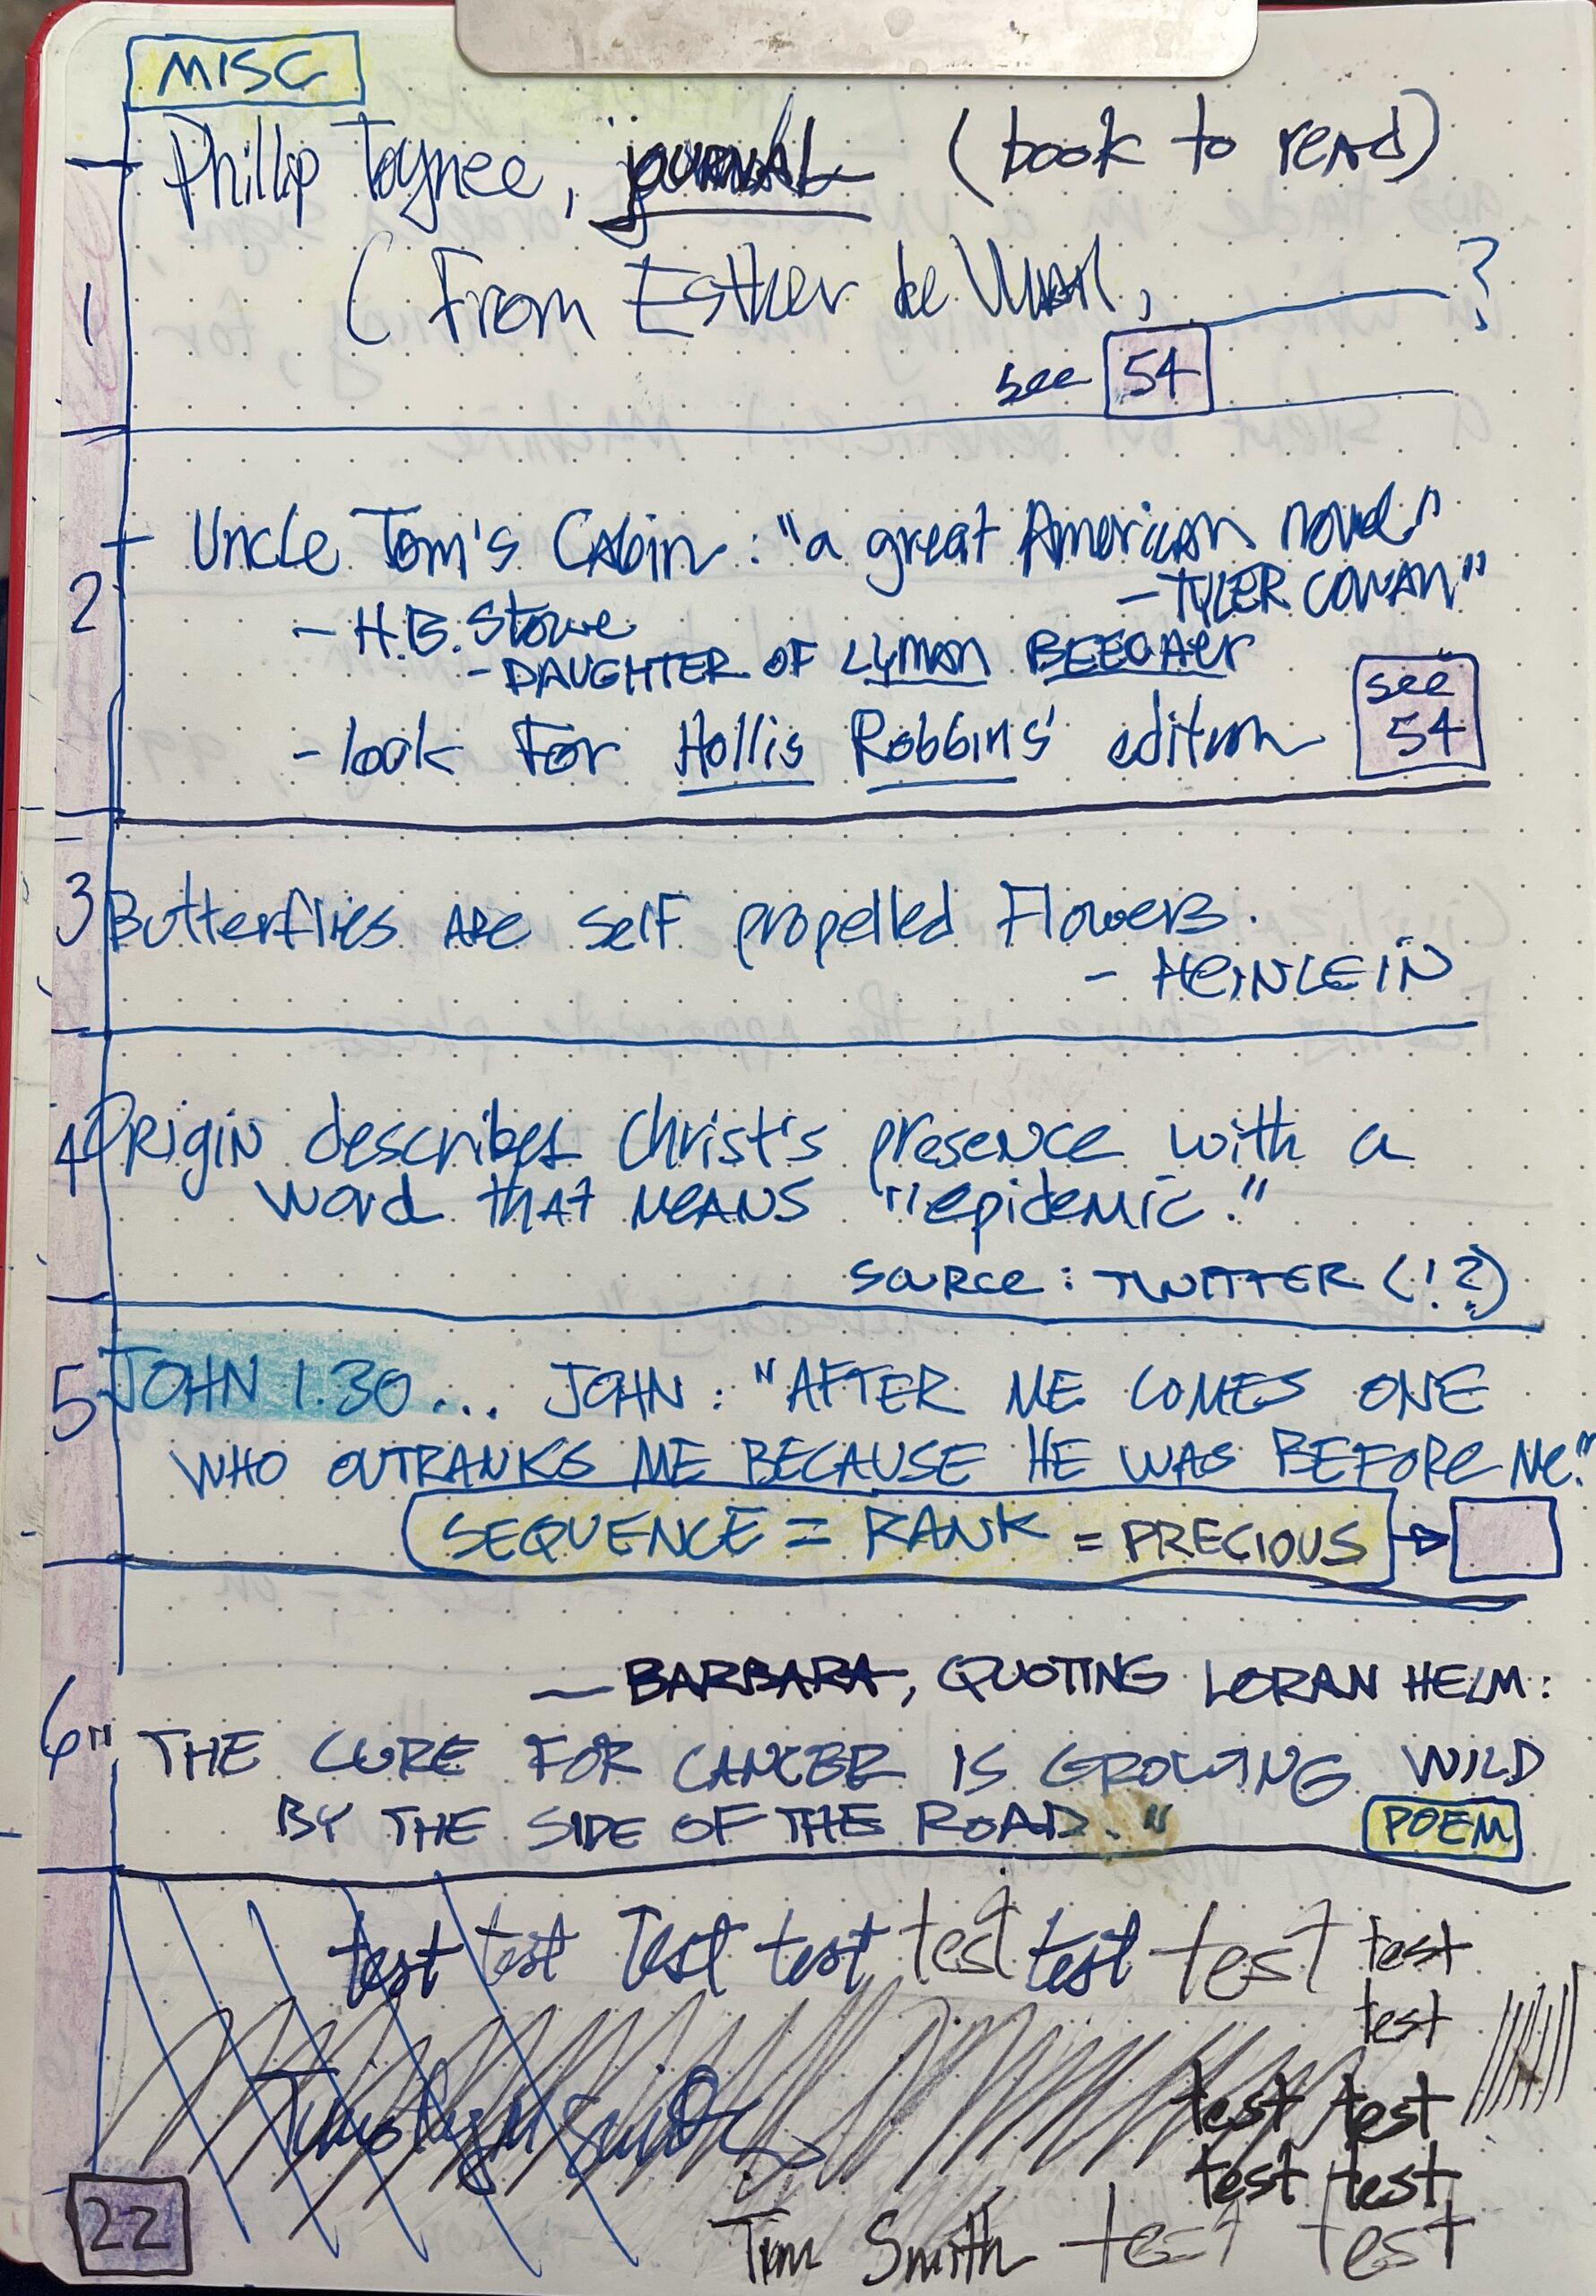 MISC
Phillip Toynee, journal (book to read)
1
(From Esther de Waal, ?
see 54
2
Uncle Tom's Cabin: "a great American novel"
- TYLER COWAN"
- H.B. Stowe
- DAUGHTER OF LYMAN BEECHER
- look For Hollis Robbins' edition
see
54
3 Butterflies ARE self propelled Flowers.
- HEINLEIN
4 ORIGIN describes Christ's presence with a
word that MEANS "epidemic."
SOURCE: TWITTER (!?)
5 JOHN 1.30... JOHN: "AFTER ME COMES ONE
WHO OUTRANKS ME BECAUSE HE WAS BEFORE Me."
SEQUENCE = RANK = PRECIOUS
— BARBARA, QUOTING LORAN HELM:
6 "THE CURE FOR CANCER IS GROWING WILD
BY THE SIDE OF THE ROAD."
POEM
test test Test test test test test test
test
test test
test test
22
Tim Smith test test